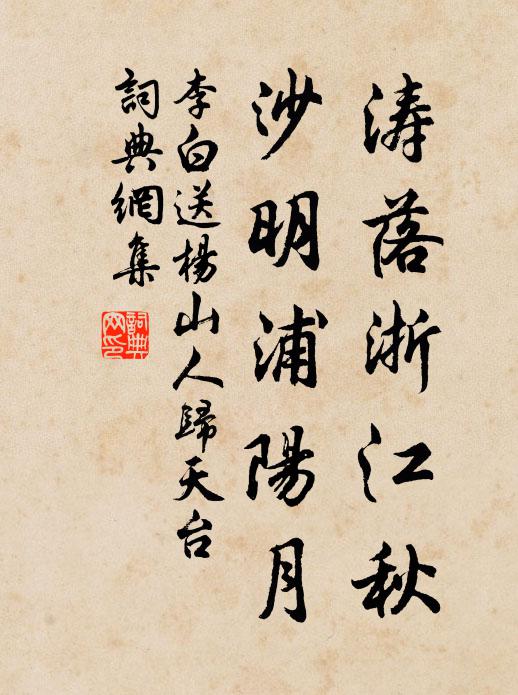 涛落浙江秋
沙明浦陽月
李白送楊山人歸天台
詞典網集
詞典网印